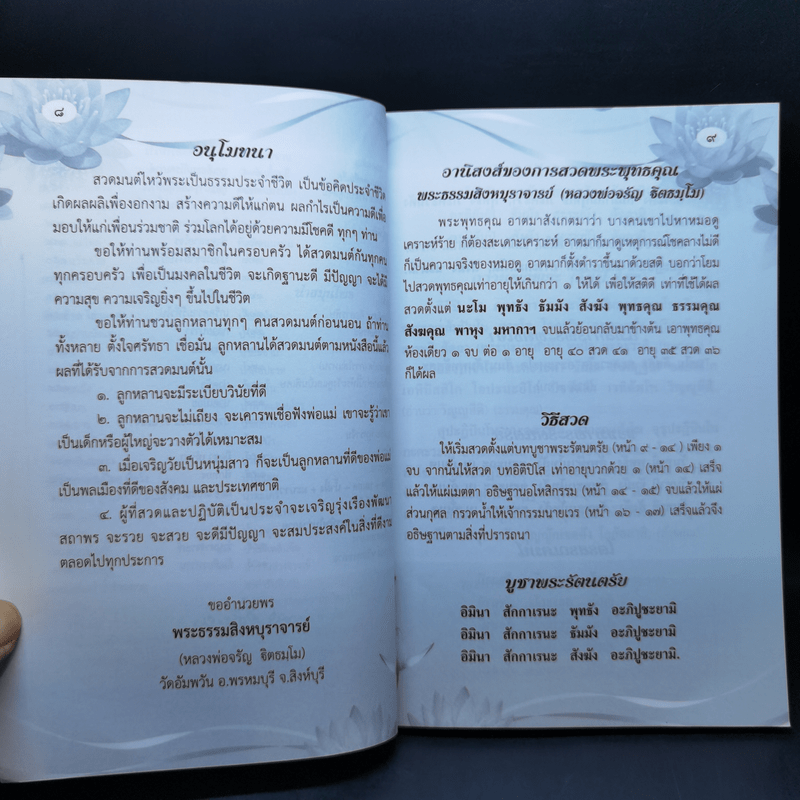 ๘
อนุโมทนา
สวดมนต์ไหว้พระเป็นธรรมประจำชีวิต เป็นข้อคิดประจำชีวิต
เกิดผลผลิเพื่องอกงาม สร้างความดีให้แก่ตน ผลกำไรเป็นความดีเพื่อ
มอบให้แก่เพื่อนร่วมชาติ ร่วมโลกได้อยู่ด้วยความมีโชคดี ทุกๆ ท่าน
ขอให้ท่านพร้อมสมาชิกในครอบครัว ได้สวดมนต์กันทุกคน
ทุกครอบครัว เพื่อเป็นมงคลในชีวิต จะเกิดฐานะดี มีปัญญา จะได้มี
ความสุข ความเจริญยิ่งๆ ขึ้นไปในชีวิต
ขอให้ท่านชวนลูกหลานทุกๆ คนสวดมนต์ก่อนนอน ถ้าท่าน
ทั้งหลาย ตั้งใจศรัทธา เชื่อมั่น ลูกหลานได้สวดมนต์ตามหนังสือนี้แล้ว
ผลที่ได้รับจากการสวดมนต์นั้น
๑. ลูกหลานจะมีระเบียบวินัยที่ดี
๒. ลูกหลานจะไม่เถียง จะเคารพเชื่อฟังพ่อแม่ เขาจะรู้ว่าเขา
เป็นเด็กหรือผู้ใหญ่จะวางตัวได้เหมาะสม
๓. เมื่อเจริญวัยเป็นหนุ่มสาว ก็จะเป็นลูกหลานที่ดีของพ่อแม่
เป็นพลเมืองที่ดีของสังคม และประเทศชาติ
๔. ผู้ที่สวดและปฏิบัติเป็นประจำจะเจริญรุ่งเรืองพัฒนา
สถาพร จะรวย จะสวย จะดีมีปัญญา จะสมประสงค์ในสิ่งที่ดีงาม
ตลอดไปทุกประการ
ขออำนวยพร
พระธรรมสิงหบุราจารย์
(หลวงพ่อจรัญ ฐิตธมฺโม)
วัดอัมพวัน อ.พรหมบุรี จ.สิงห์บุรี
๙
อานิสงส์ของการสวดพระพุทธคุณ
พระธรรมสิงหบุราจารย์ (หลวงพ่อจรัญ ฐิตธมฺโม)
พระพุทธคุณ อาตมาสังเกตมาว่า บางคนเขาไปหาหมอดู
เคราะห์ร้าย ก็ต้องสะเดาะเคราะห์ อาตมาก็มาดูเหตุการณ์โชคลางไม่ดี
ก็เป็นความจริงของหมอดู อาตมาก็ตั้งตำราขึ้นมาด้วยสติ บอกว่าโยม
ไปสวดพุทธคุณเท่าอายุให้เกินกว่า ๑ ให้ได้ เพื่อให้สติดี เท่าที่ใช้ได้ผล
สวดตั้งแต่ นะโม พุทธัง ธัมมัง สังฆัง พุทธคุณ ธรรมคุณ
สังฆคุณ พาหุง มหากาฯ จบแล้วย้อนกลับมาข้างต้น เอาพุทธคุณ
ห้องเดียว ๑ จบ ต่อ ๑ อายุ อายุ ๔๐ สวด ๔๑ อายุ ๓๕ สวด ๓๖
ก็ได้ผล
วิธีสวด
ให้เริ่มสวดตั้งแต่บทบูชาพระรัตนตรัย (หน้า ๙ - ๑๔ ) เพียง ๑
จบ จากนั้นให้สวด บทอิติปิโส เท่าอายุบวกด้วย ๑ (หน้า ๑๔) เสร็จ
แล้วให้แผ่เมตตา อธิษฐานอโหสิกรรม (หน้า ๑๔ - ๑๕) จบแล้วให้แผ่
ส่วนกุศล กรวดน้ำให้เจ้ากรรมนายเวร (หน้า ๑๖ - ๑๗) เสร็จแล้วจึง
อธิษฐานตามสิ่งที่ปรารถนา
บูชาพระรัตนตรัย
อิมินา สักกาเรนะ พุทธัง อะภิปูชะยามิ
อิมินา สักกาเรนะ ธัมมัง อะภิปูชะยามิ
อิมินา สักกาเรนะ สังฆัง อะภิปูชะยามิ.